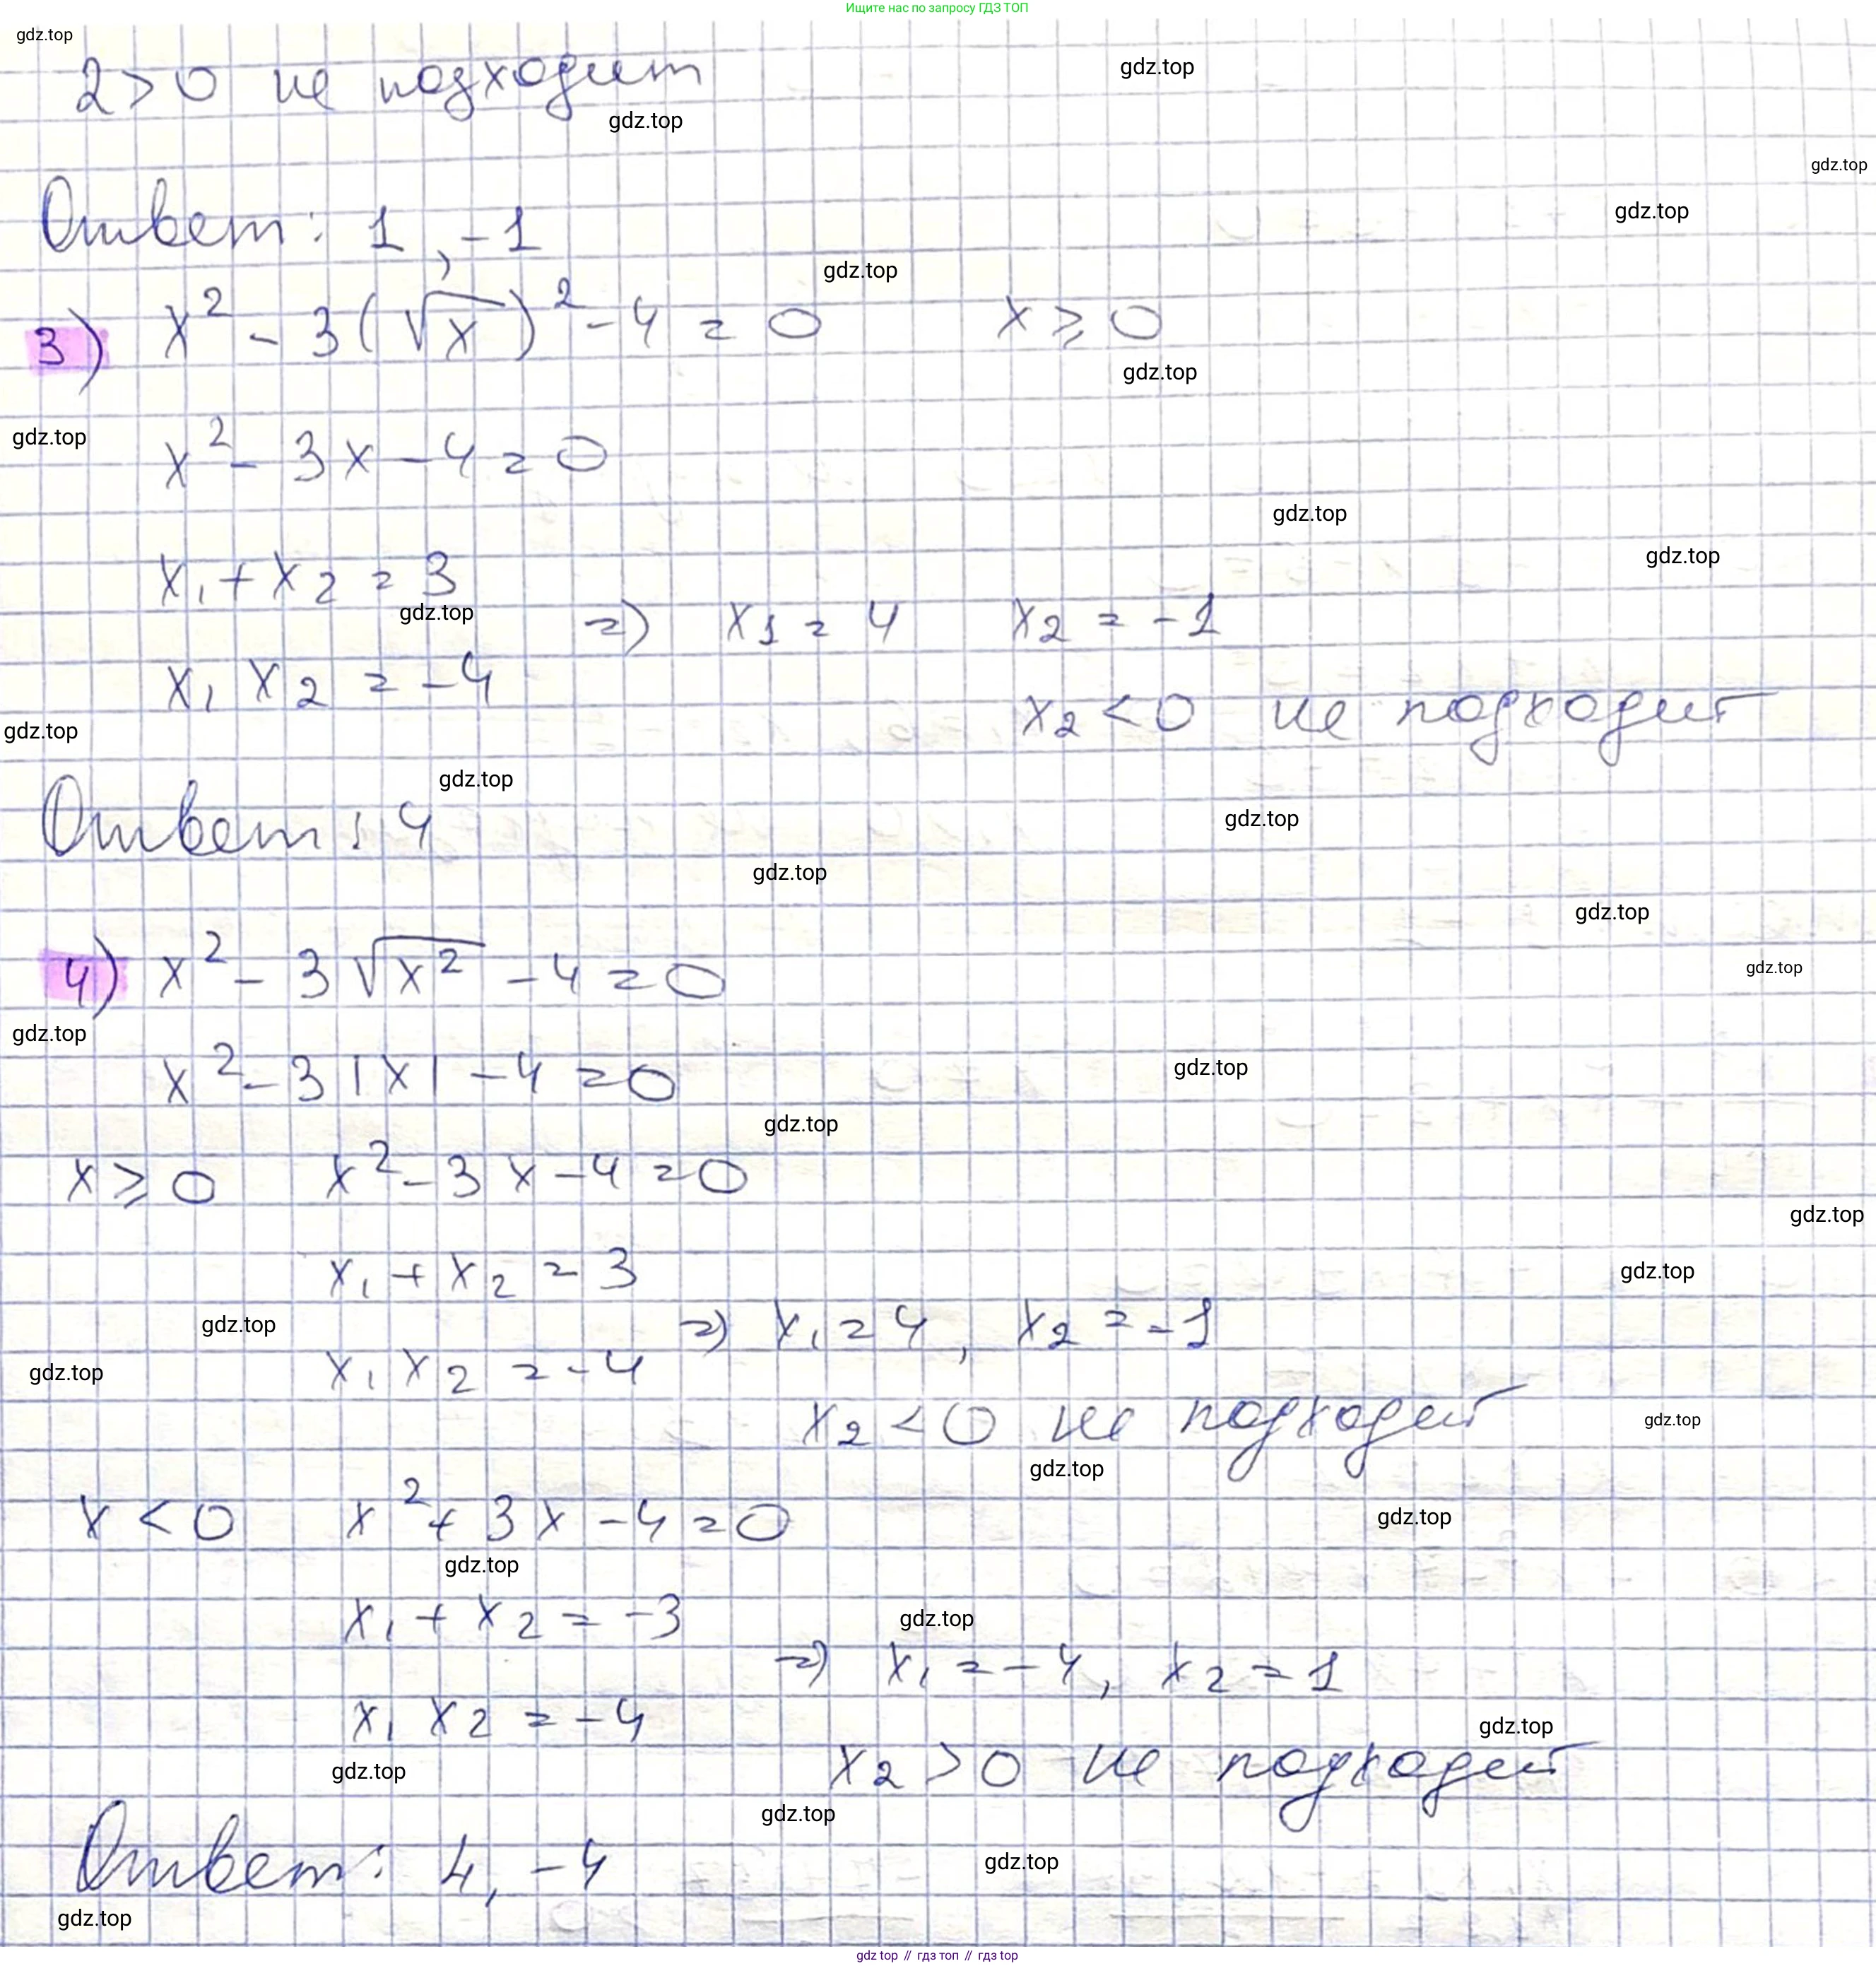 Ищите нас по запросу ГДЗ ТОП
gdz.top
2 > 0 не подходит
gdz.top
gdz.top
gdz.top
Ответ: 1, -1
gdz.top
gdz.top
3) x² - 3(√x)² - 4 = 0 x ⩾ 0
gdz.top
gdz.top
x² - 3x - 4 = 0
gdz.top
gdz.top
x₁ + x₂ = 3
gdz.top
=> x₁ = 4 x₂ = -1
x₁ x₂ = -4
x₂ < 0 не подходит
gdz.top
gdz.top
Ответ: 4
gdz.top
gdz.top
gdz.top
4) x² - 3√x² - 4 = 0
gdz.top
gdz.top
x² - 3|x| - 4 = 0
gdz.top
gdz.top
x ⩾ 0 x² - 3x - 4 = 0
gdz.top
x₁ + x₂ = 3
gdz.top
gdz.top
=> x₁ = 4, x₂ = -1
x₁ x₂ = -4
gdz.top
x₂ < 0 не подходит
gdz.top
gdz.top
x < 0 x² + 3x - 4 = 0
gdz.top
gdz.top
x₁ + x₂ = -3
gdz.top
=> x₁ = -4, x₂ = 1
x₁ x₂ = -4
gdz.top
x₂ > 0 не подходит
gdz.top
gdz.top
Ответ: 4, -4
gdz.top
gdz.top
gdz top // гдз топ // гдз top